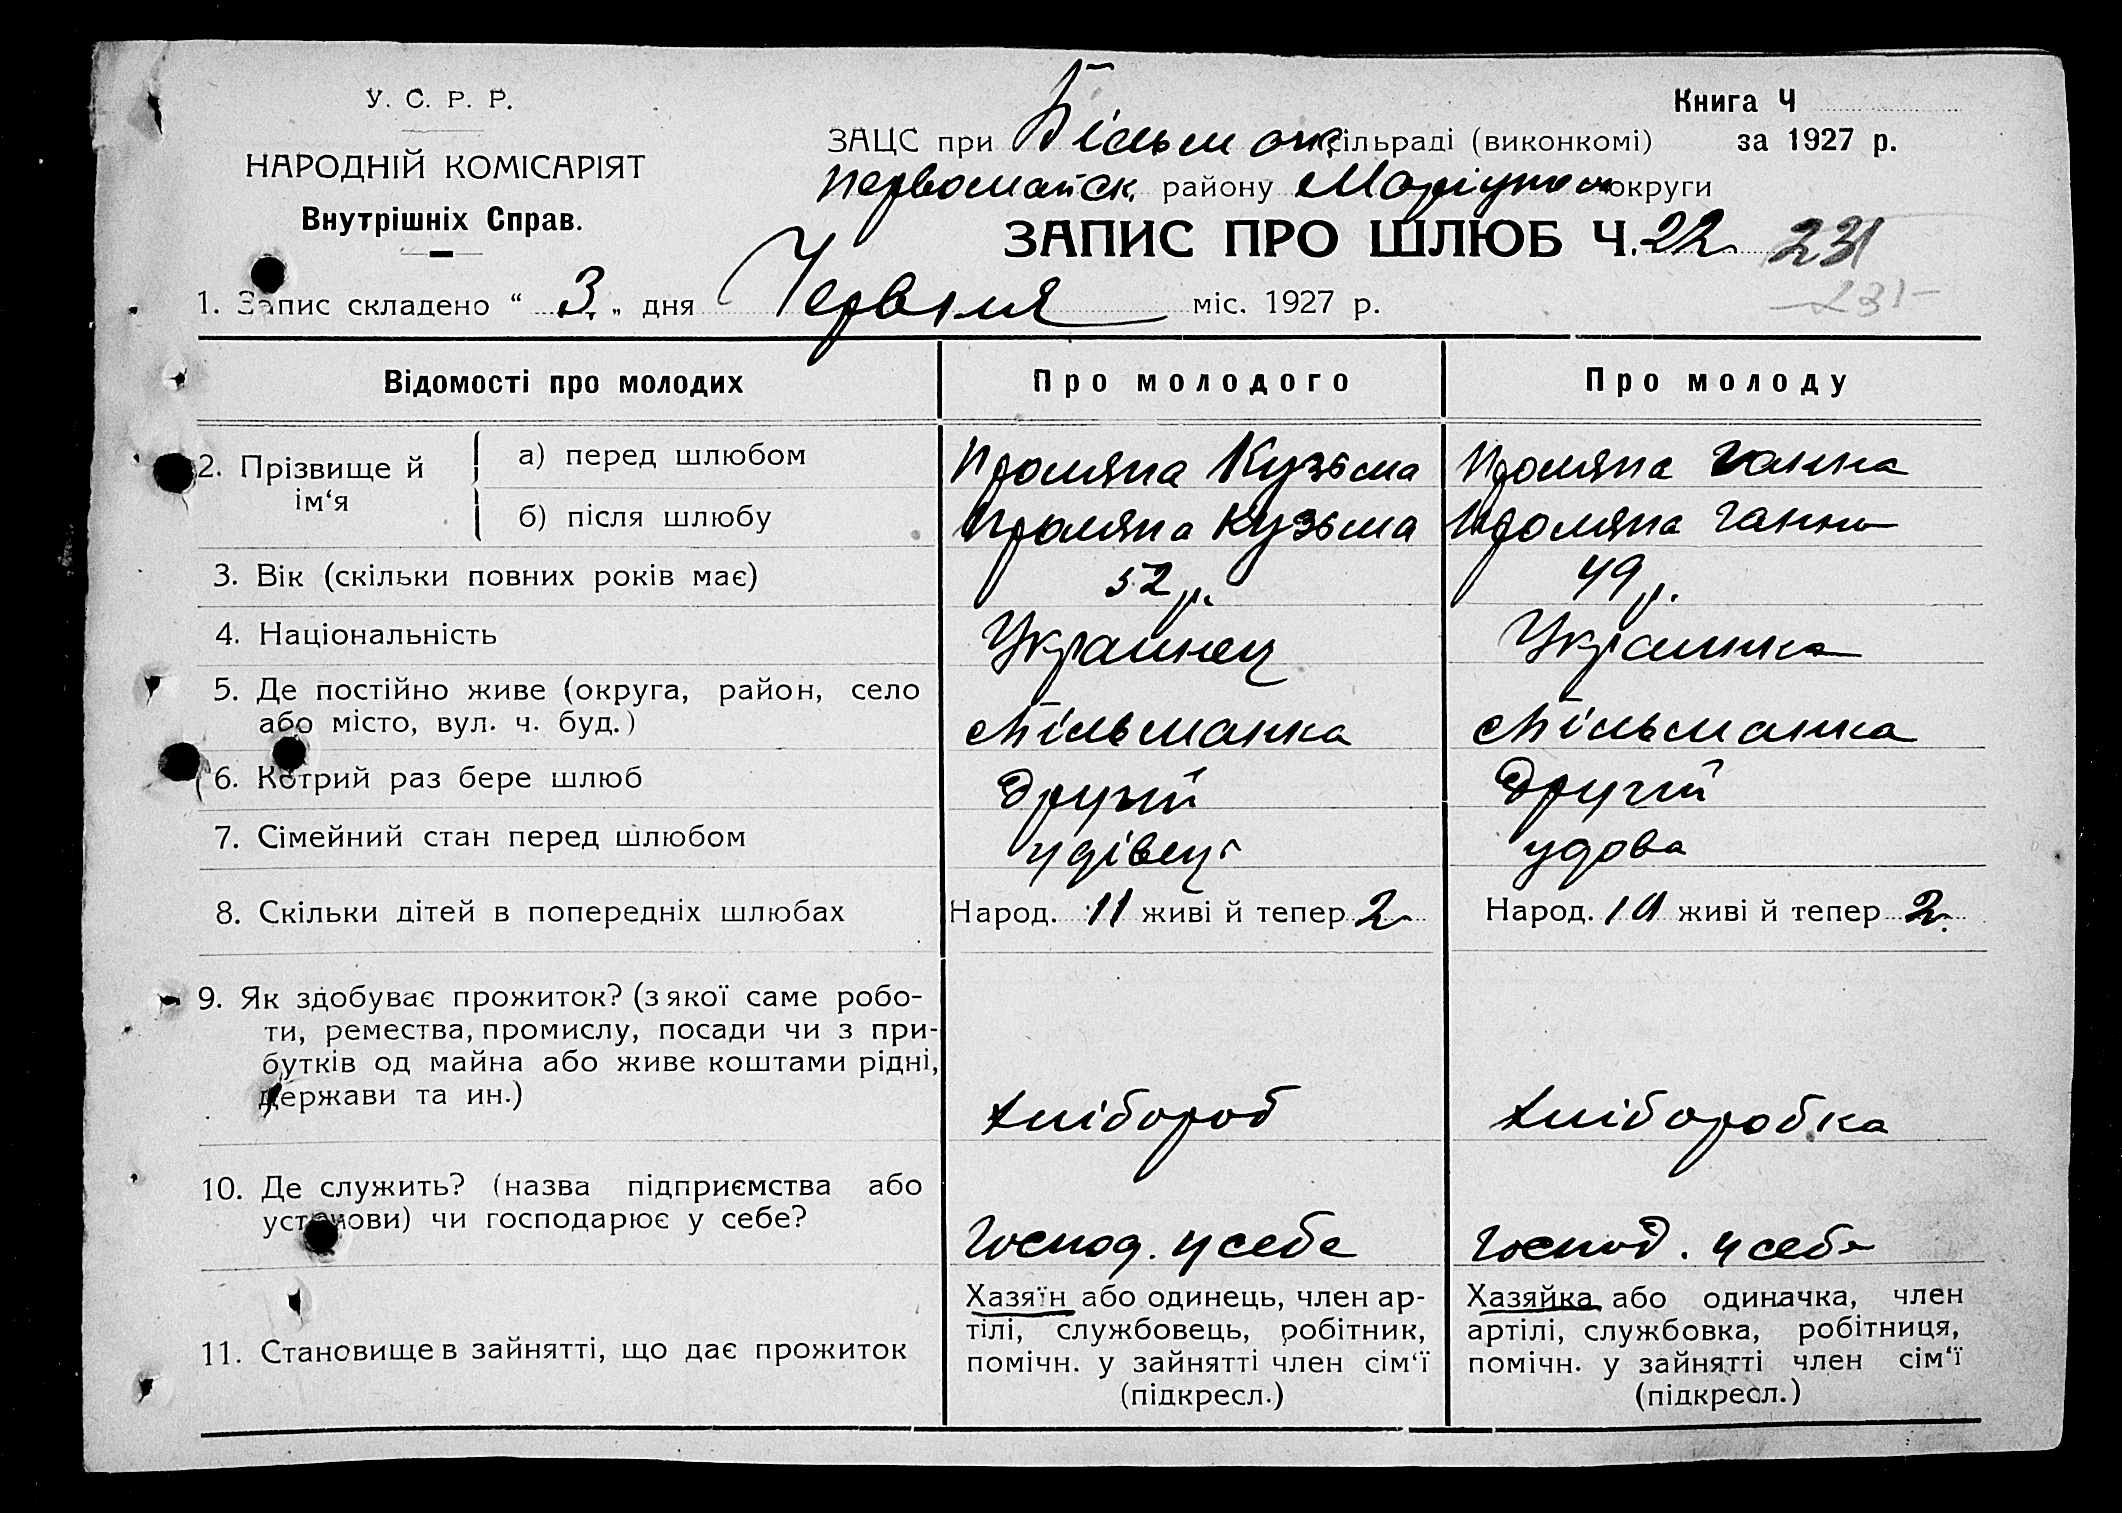 У. С. Р. Р.
НАРОДНІЙ КОМІСАРІЯТ
Внутрішніх Справ.
Книга Ч
за 1927 р.
ЗАЦС при Більман. сільраді (виконкомі)
Первомайск. району Маріупол. округи
ЗАПИС ПРО ШЛЮБ Ч. 22 231
231
1. Запис складено “ 3 „ дня Червня міс. 1927 р.
Відомості про молодих Про молодого Про молоду
2. Прізвище й ім‘я
а) перед шлюбом Кузьма Ганна
б) після шлюбу Кузьма Ганна
3. Вік (скільки повних років має) 52 р. 49 р.
4. Національність Украинец Украинка
5. Де постійно живе (округа, район, село
або місто, вул. ч. буд.) Більманка Більманка
6. Котрий раз бере шлюб Другий Другий
7. Сімейний стан перед шлюбом удівець удова
8. Скільки дітей в попередніх шлюбах Народ. 11 живі й тепер 2 Народ. живі й тепер 2.
9. Як здобуває прожиток? (з якої саме робо-
ти, ремества, промислу, посади чи з при-
бутків од майна або живе коштами рідні,
держави та ин.) хлібороб хліборобка
10. Де служить? (назва підприємства або
установи) чи господарює у себе? Господ. у себе Господ. у себе
11. Становище в зайнятті, що дає прожиток
Хазяїн або одинець, член ар-
тілі, службовець, робітник,
помічн. у зайнятті член сім‘ї
(підкресл.)
Хазяйка або одиначка, член
артілі, службовка, робітниця,
помічн. у зайнятті член сім‘ї
(підкресл.)